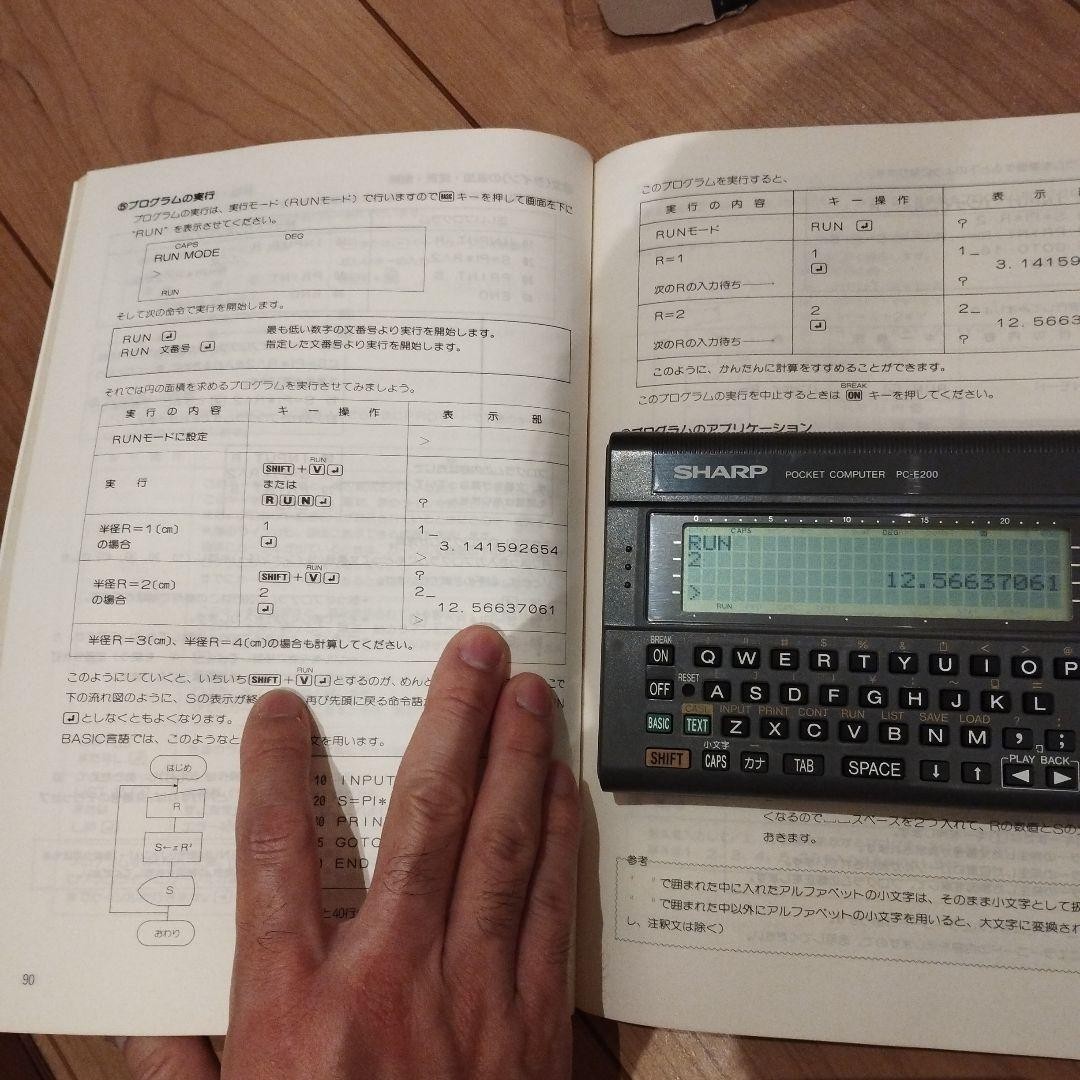 ⑤プログラムの実行
プログラムの実行は、実行モード（RUNモード）で行いますのでBASICキーを押して画面左下に
"RUN" を表示させてください。
CAPS DEG
RUN MODE
>
RUN
そして次の命令で実行を開始します。
RUN ↵ 最も低い数字の文番号より実行を開始します。
RUN 文番号 ↵ 指定した文番号より実行を開始します。
それでは円の面積を求めるプログラムを実行させてみましょう。
実行の内容 キー操作 表示部
RUNモードに設定 >
RUN
実行 SHIFT + V ↵
または
R U N ↵ ?
半径R=1〔cm〕 1 1_
の場合 ↵ 3.141592654
>
RUN
半径R=2〔cm〕 SHIFT + V ↵ ?
の場合 2 2_
↵ 12.56637061
>
半径R=3〔cm〕、半径R=4〔cm〕の場合も計算してください。
RUN
このようにしていくと、いちいちSHIFT+V↵とするのが、めんと
下の流れ図のように、Sの表示が終 再び先頭に戻る命令語
↵としなくともよくなります。
BASIC言語では、このようなと 文を用います。
はじめ
R
S←πR²
S
おわり
10 INPUT
20 S=PI*
30 PRIN
5 GOTO
END
と40行
90
このプログラムを実行すると、
実行の内容 キー操作 表示
RUNモード RUN ↵ ?
R=1 1 1_
↵ 3.14159
次のRの入力待ち→ ?
R=2 2 2_
↵ 12.5663
次のRの入力待ち→ ?
このように、かんたんに計算をすすめることができます。
BREAK
このプログラムの実行を中止するときは ON キーを押してください。
プログラムのアプリケーション
SHARP POCKET COMPUTER PC-E200
0 5 10 15 20
CAPS DEG
RUN
2
12.56637061
>
RUN
BREAK
ON Q W E R T Y U I O P
OFF RESET A S D F G H J K L
CASL INPUT PRINT CONT RUN LIST SAVE LOAD
BASIC TEXT Z X C V B N M , ;
小文字 PLAY BACK
SHIFT CAPS カナ TAB SPACE ↓ ↑ ◀ ▶
くなるので スペースを2つ入れて、Rの数値とSの
おきます。
参考
" "で囲まれた中に入れたアルファベットの小文字は、そのまま小文字として扱
" "で囲まれた中以外にアルファベットの小文字を用いると、大文字に変換され
し、注釈文は除く）